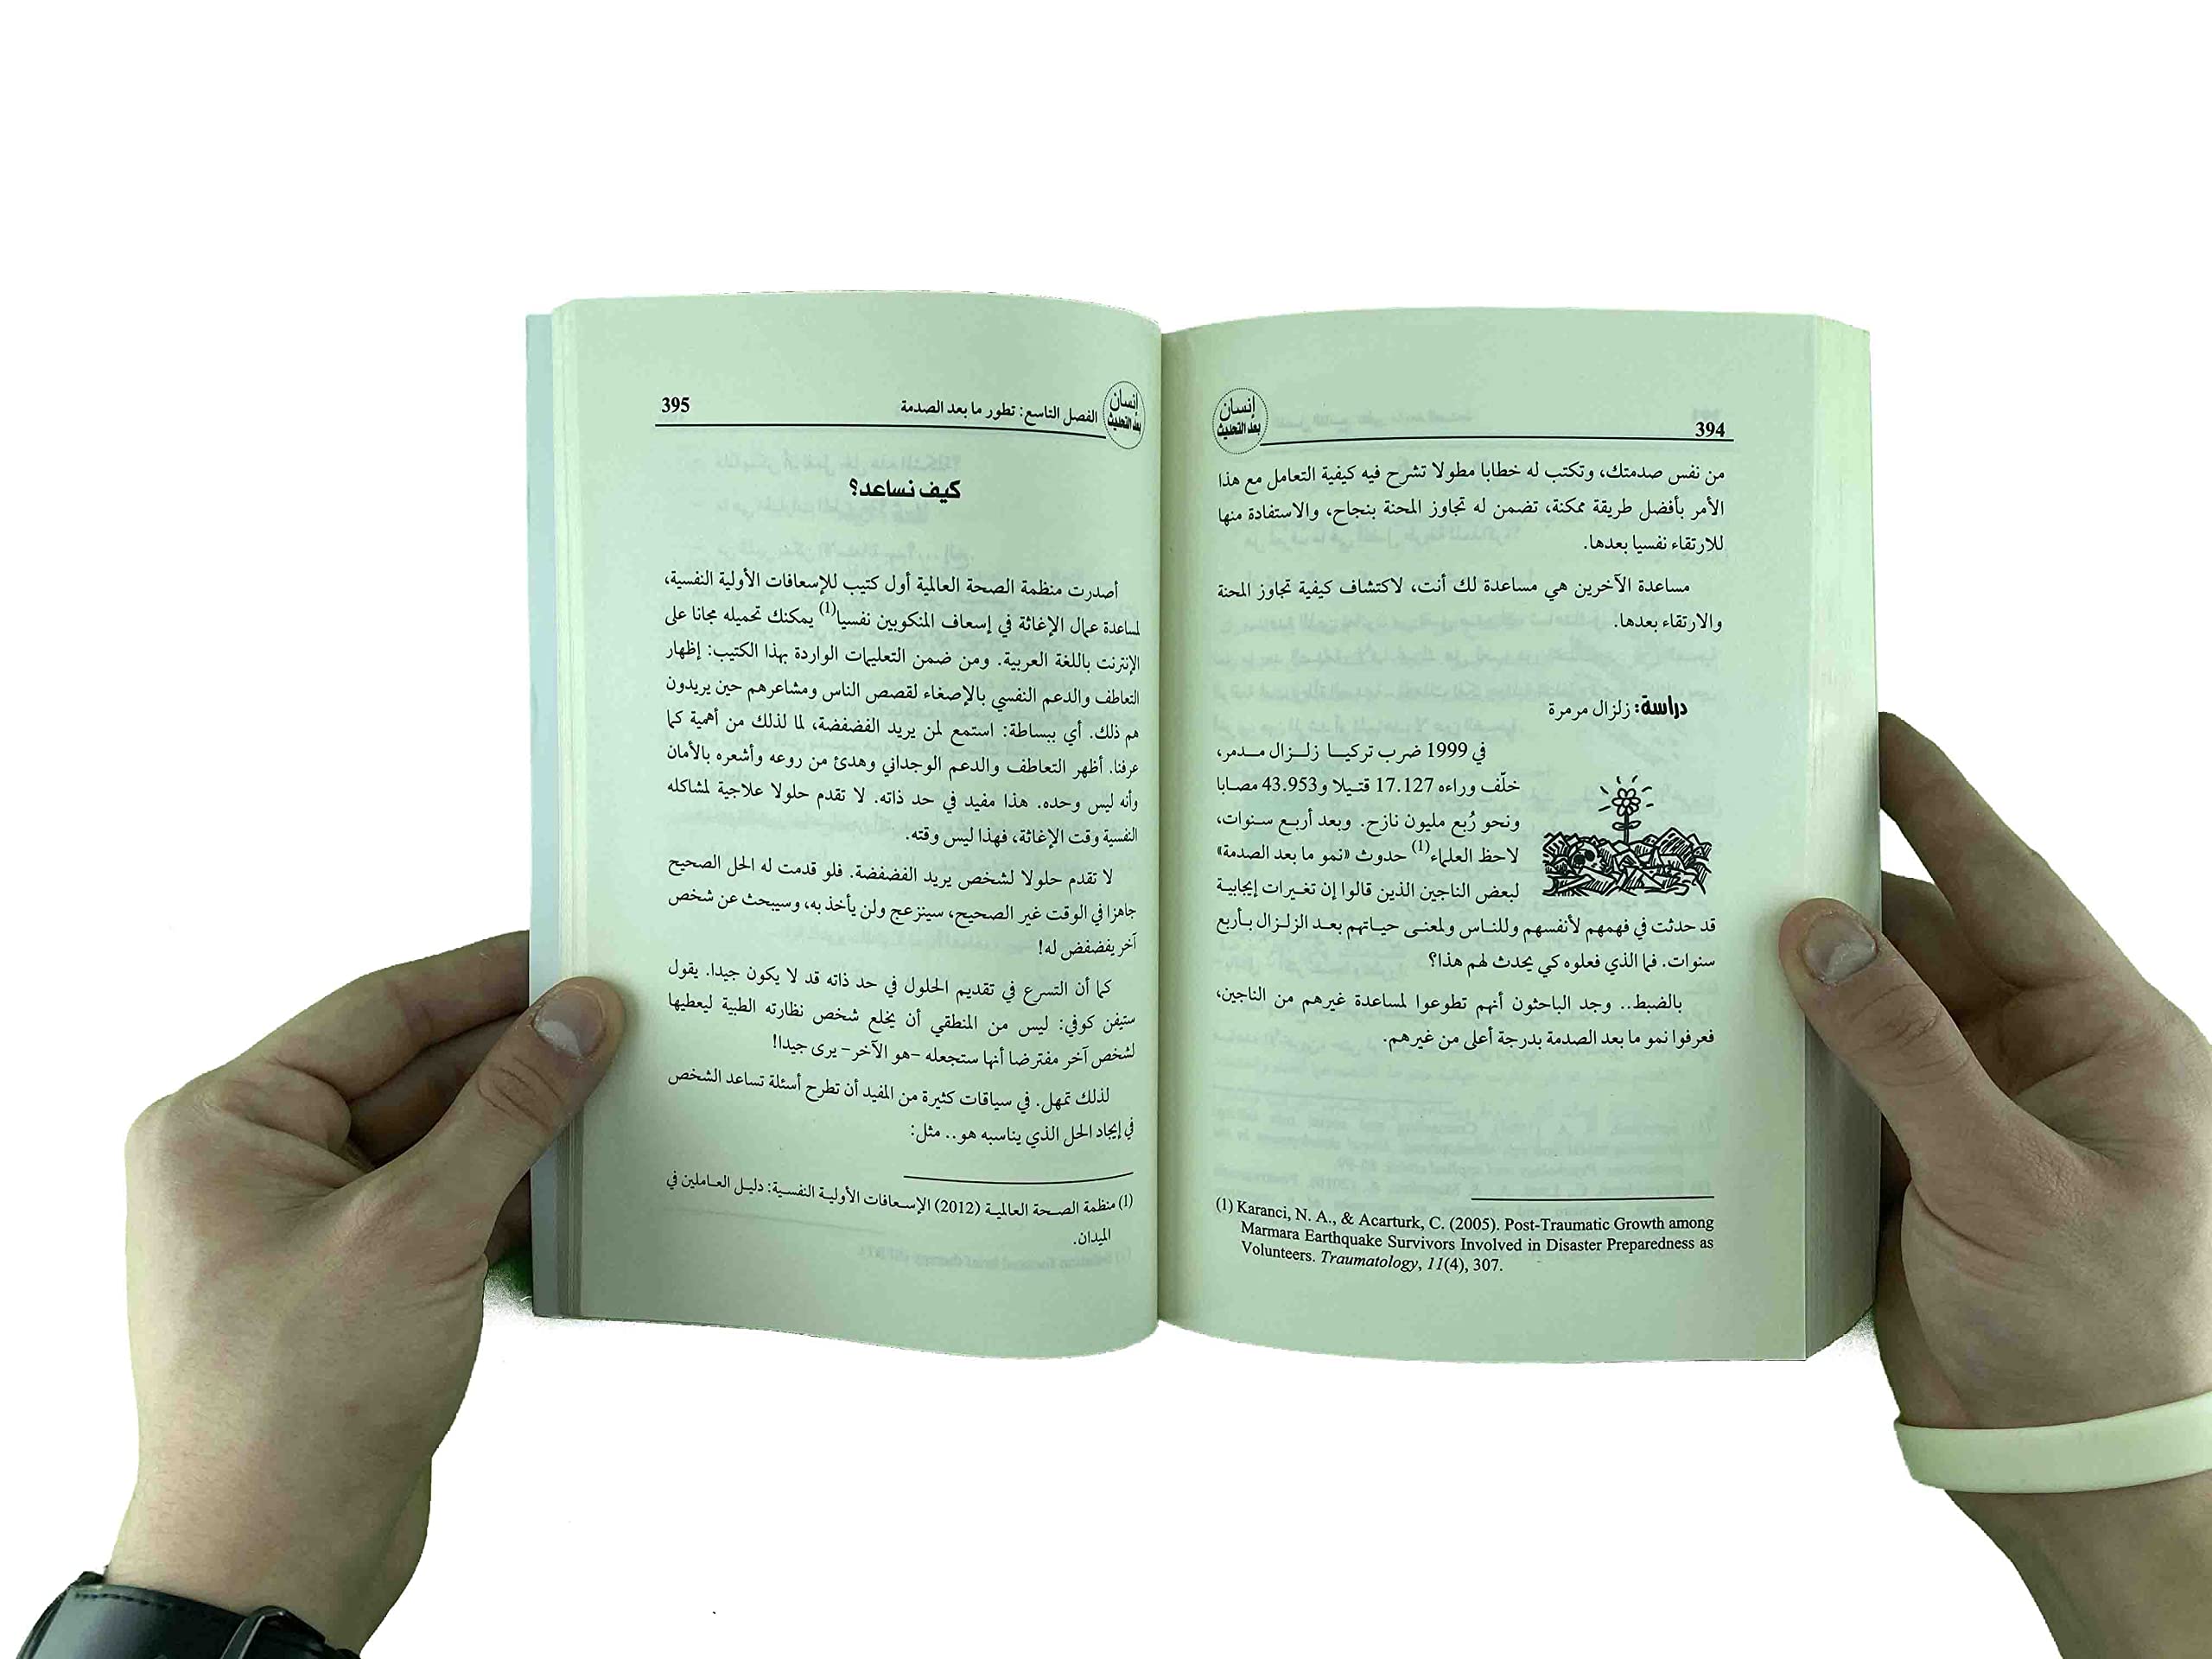 394
إنسان
بعد التحديث
من نفس صدمتك، وتكتب له خطابا مطولا تشرح فيه كيفية التعامل مع هذا
الأمر بأفضل طريقة ممكنة، تضمن له تجاوز المحنة بنجاح، والاستفادة منها
للارتقاء نفسيا بعدها.
مساعدة الآخرين هي مساعدة لك أنت، لاكتشاف كيفية تجاوز المحنة
والارتقاء بعدها.
دراسة: زلزال مرمرة
في 1999 ضرب تركيا زلزال مدمر،
خلّف وراءه 17.127 قتيلا و43.953 مصابا
ونحو رُبع مليون نازح. وبعد أربع سنوات،
لاحظ العلماء(1) حدوث «نمو ما بعد الصدمة»
لبعض الناجين الذين قالوا إن تغيرات إيجابية
قد حدثت في فهمهم لأنفسهم وللناس ولمعنى حياتهم بعد الزلزال بأربع
سنوات. فما الذي فعلوه كي يحدث لهم هذا؟
بالضبط.. وجد الباحثون أنهم تطوعوا لمساعدة غيرهم من الناجين،
فعرفوا نمو ما بعد الصدمة بدرجة أعلى من غيرهم.
(1) Karanci, N. A., & Acarturk, C. (2005). Post-Traumatic Growth among
Marmara Earthquake Survivors Involved in Disaster Preparedness as
Volunteers. Traumatology, 11(4), 307.
إنسان
بعد التحديث
الفصل التاسع: تطور ما بعد الصدمة
395
كيف نساعد؟
أصدرت منظمة الصحة العالمية أول كتيب للإسعافات الأولية النفسية،
لمساعدة عمال الإغاثة في إسعاف المنكوبين نفسيا(1) يمكنك تحميله مجانا على
الإنترنت باللغة العربية. ومن ضمن التعليمات الواردة بهذا الكتيب: إظهار
التعاطف والدعم النفسي بالإصغاء لقصص الناس ومشاعرهم حين يريدون
هم ذلك. أي ببساطة: استمع لمن يريد الفضفضة، لما لذلك من أهمية كما
عرفنا. أظهر التعاطف والدعم الوجداني وهدئ من روعه وأشعره بالأمان
وأنه ليس وحده. هذا مفيد في حد ذاته. لا تقدم حلولا علاجية لمشاكله
النفسية وقت الإغاثة، فهذا ليس وقته.
لا تقدم حلولا لشخص يريد الفضفضة. فلو قدمت له الحل الصحيح
جاهزا في الوقت غير الصحيح، سينزعج ولن يأخذ به، وسيبحث عن شخص
آخر يفضفض له!
كما أن التسرع في تقديم الحلول في حد ذاته قد لا يكون جيدا. يقول
ستيفن كوفي: ليس من المنطقي أن يخلع شخص نظارته الطبية ليعطيها
لشخص آخر مفترضا أنها ستجعله -هو الآخر- يرى جيدا!
لذلك تمهل. في سياقات كثيرة من المفيد أن تطرح أسئلة تساعد الشخص
في إيجاد الحل الذي يناسبه هو.. مثل:
(1) منظمة الصحة العالمية (2012) الإسعافات الأولية النفسية: دليل العاملين في
الميدان.